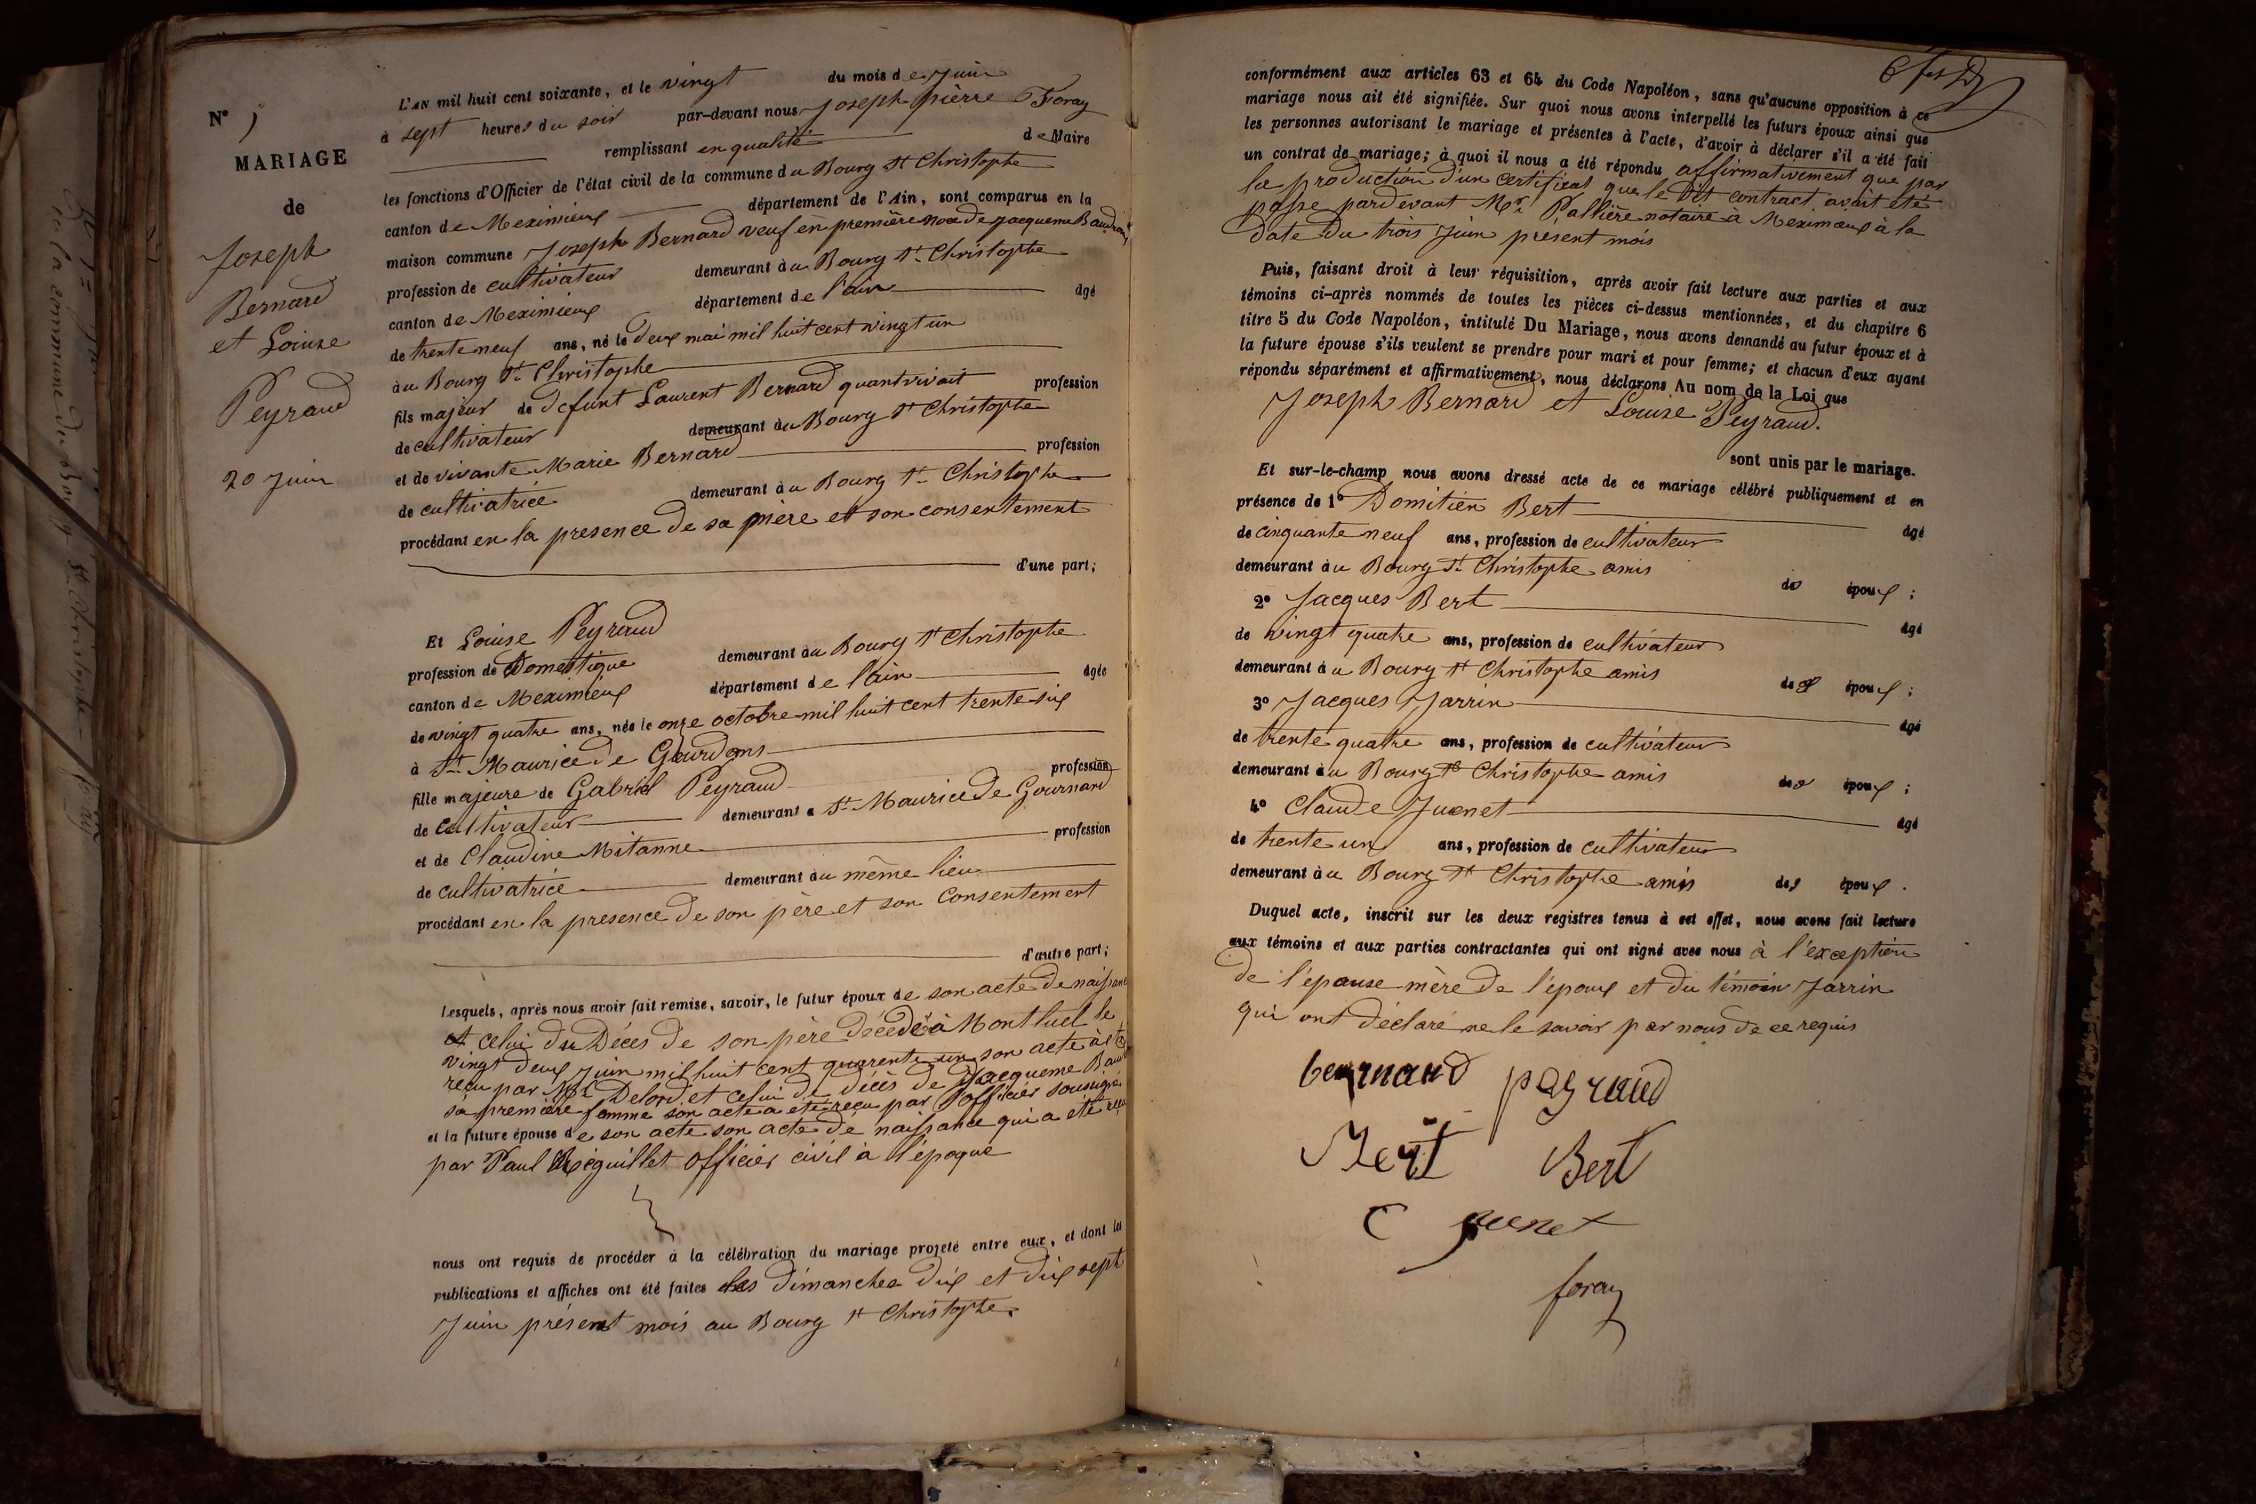 N° 5
MARIAGE
de
Joseph
Bernard
et Louise
Peyraud
20 Juin
L'AN mil huit cent soixante, et le vingt du mois de Juin
à sept heures du soir par-devant nous Joseph pièrre Foray
remplissant en qualité de Maire
les fonctions d'Officier de l'état civil de la commune du Bourg St Christophe
canton de Meximieux département de l'Ain, sont comparus en la
maison commune Joseph Bernard veuf en première noce de Jacqueme Baudran
profession de cultivateur demeurant au Bourg St Christophe
canton de Meximieux département de l'ain âgé
de trente neuf ans, né le deux mai mil huit cent vingt un
au Bourg St Christophe
fils majeur de defunt Laurent Bernard quant vivait profession
de cultivateur demeurant au Bourg St Christophe
et de vivante Marie Bernard profession
de cultivatrice demeurant au Bourg St Christophe
procédant en la presence de sa mere et son consentement
d'une part;
Et Louise Peyraud
profession de Domestique demeurant au Bourg St Christophe
canton de Meximieux département de l'ain âgée
de vingt quatre ans, née le onze octobre mil huit cent trente six
à St Maurice de Gourdans
fille majeure de Gabriel Peyraud profession
de cultivateur demeurant a St Maurice de Gournard
et de Claudine Mitanne profession
de cultivatrice demeurant au même lieu
procédant en la presence de son père et son consentement
d'autre part;
Lesquels, après nous avoir fait remise, savoir, le futur époux de son acte de naissance
et celui du Décès de son père décédé à Montluel le
vingt deux Juin mil huit cent quarente un son acte à été
reçu par Mr Delord et celui de décès de Jacqueme Baud
sa première femme son acte a eté reçu par l'officier soussigné
et la future épouse de son acte son acte de naissance qui a été reçu
par Paul Riguillet officier civil à l'époque
nous ont requis de procéder à la célébration du mariage projeté entre eux, et dont les
publications et affiches ont été faites les dimanches dix et dix sept
Juin présent mois au Bourg St Christophe.
conformément aux articles 63 et 64 du Code Napoléon, sans qu'aucune opposition à ce
mariage nous ait été signifiée. Sur quoi nous avons interpellé les futurs époux ainsi que
les personnes autorisant le mariage et présentes à l'acte, d'avoir à déclarer s'il a été fait
un contrat de mariage; à quoi il nous a été répondu affirmativement que par
la production d'un certificat que le dit contract avait été
passe pardevant Mr Pallière notaire à Meximieux à la
date du trois Juin present mois
Puis, faisant droit à leur réquisition, après avoir fait lecture aux parties et aux
témoins ci-après nommés de toutes les pièces ci-dessus mentionnées, et du chapitre 6
titre 5 du Code Napoléon, intitulé Du Mariage, nous avons demandé au futur époux et à
la future épouse s'ils veulent se prendre pour mari et pour femme; et chacun d'eux ayant
répondu séparément et affirmativement, nous déclarons Au nom de la Loi que
Joseph Bernard et Louise Peyraud.
sont unis par le mariage.
Et sur-le-champ nous avons dressé acte de ce mariage célébré publiquement et en
présence de 1° Domitien Bert âgé
de cinquante neuf ans, profession de cultivateur
demeurant au Bourg St Christophe amis des époux;
2° Jacques Bert âgé
de vingt quatre ans, profession de cultivateur
demeurant au Bourg St Christophe amis des époux;
3° Jacques Jarrin âgé
de trente quatre ans, profession de cultivateur
demeurant au Bourg St Christophe amis des époux;
4° Claude Juenet âgé
de trente un ans, profession de cultivateur
demeurant au Bourg St Christophe amis des époux.
Duquel acte, inscrit sur les deux registres tenus à cet effet, nous avons fait lecture
aux témoins et aux parties contractantes qui ont signé avec nous à l'exception
de l'épouse mère de l'époux et du témoin Jarrin
qui ont déclaré ne le savoir par nous de ce requis
bernard payraud
Bert Bert
C juenet
foray